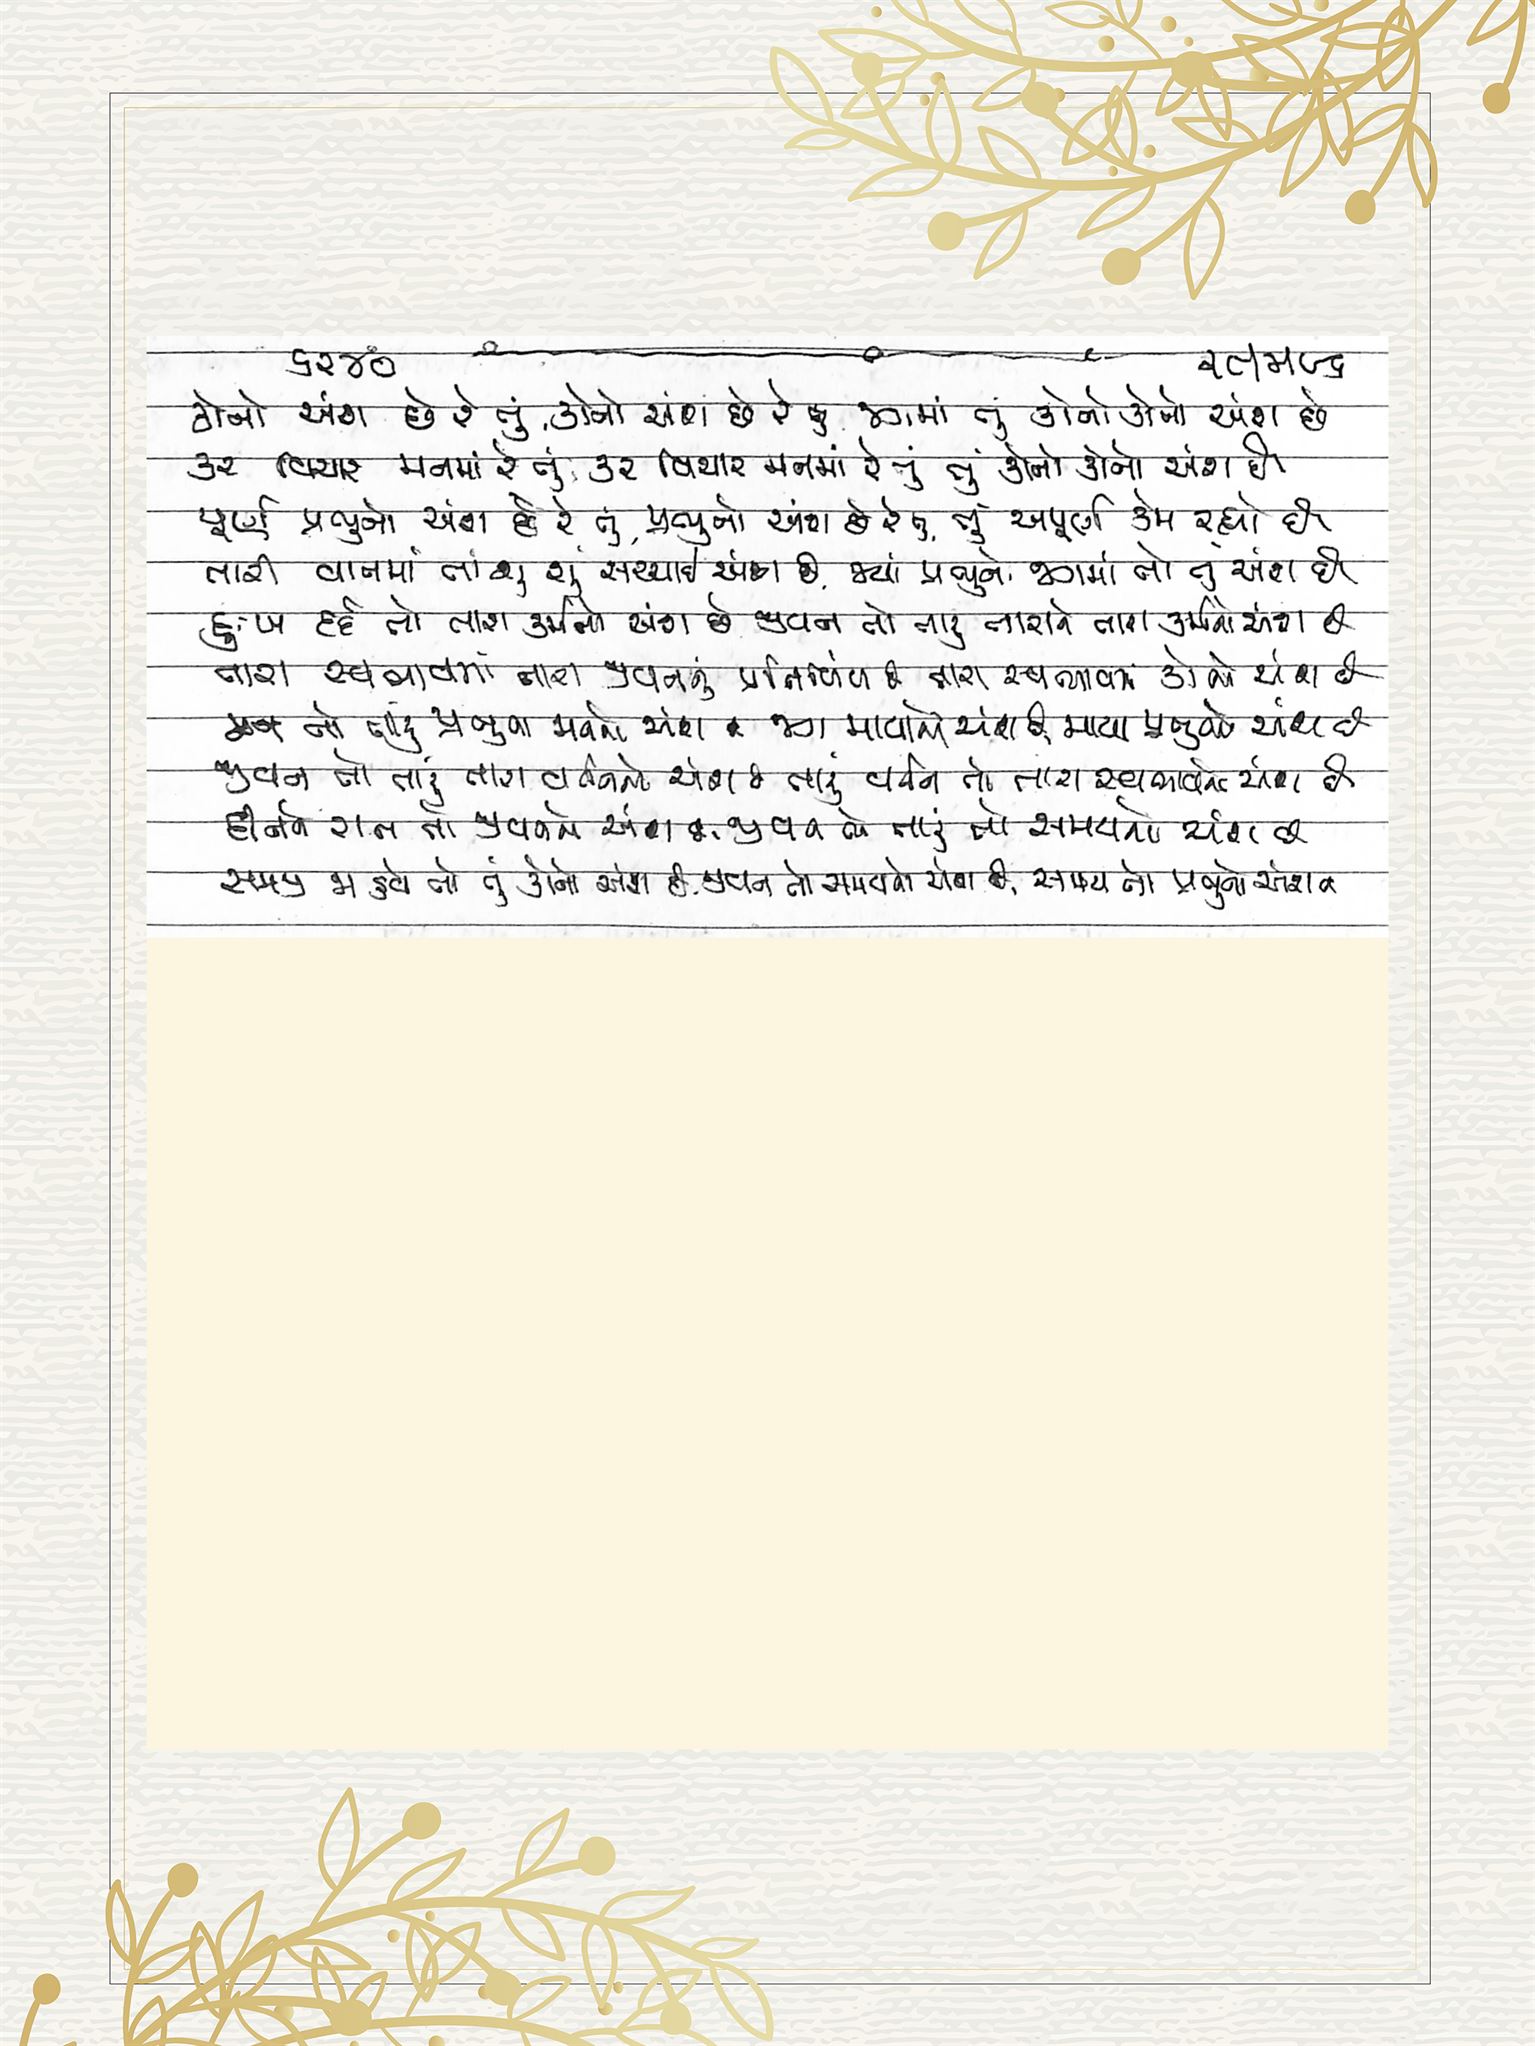 ૬૨૪૦
કોનો અંશ છે રે તું, કોનો અંશ છે રે તું, જગમાં તું કોનો કોનો અંશ છે
કર વિચાર મનમાં રે તું, કર વિચાર મનમાં રે તું, તું કોનો કોનો અંશ છે
પૂર્ણ પ્રભુનો અંશ છે રે તું, પ્રભુનો અંશ છે રે તું, તું અપૂર્ણ કેમ રહ્યો છે
તારી વાતમાં તો શું શું સચ્ચાઈ અંશ છે, જ્યાં પ્રભુનો જગમાં તો તું અંશ છે
દુઃખ દર્દ તો તારા કર્મનો અંશ છે જીવન તો તારું તારાને તારા કર્મનો અંશ છે
તારા સ્વભાવમાં તારા જીવનનું પ્રતિબિંબ છે તારા સ્વભાવમાં કોનો અંશ છે
મન તો તારું પ્રભુના મનનો અંશ છે જગ માયાનો અંશ છે, માયા પ્રભુનો અંશ છે
જીવન તો તારું તારા વર્તનનો અંશ છે તારું વર્તન તો તારા સ્વભાવનો અંશ છે
દિનને રાત તો જીવનનો અંશ છે, જીવન તો તારું તો સમયનો અંશ છે
સમજી તો તું કોનો અંશ છે, જીવન તો સમયનો અંશ છે, સમય તો પ્રભુનો અંશ છે